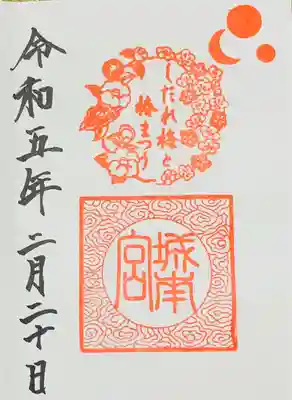 しだれ梅と
椿まつり
城南
宮
令和五年二月二十日